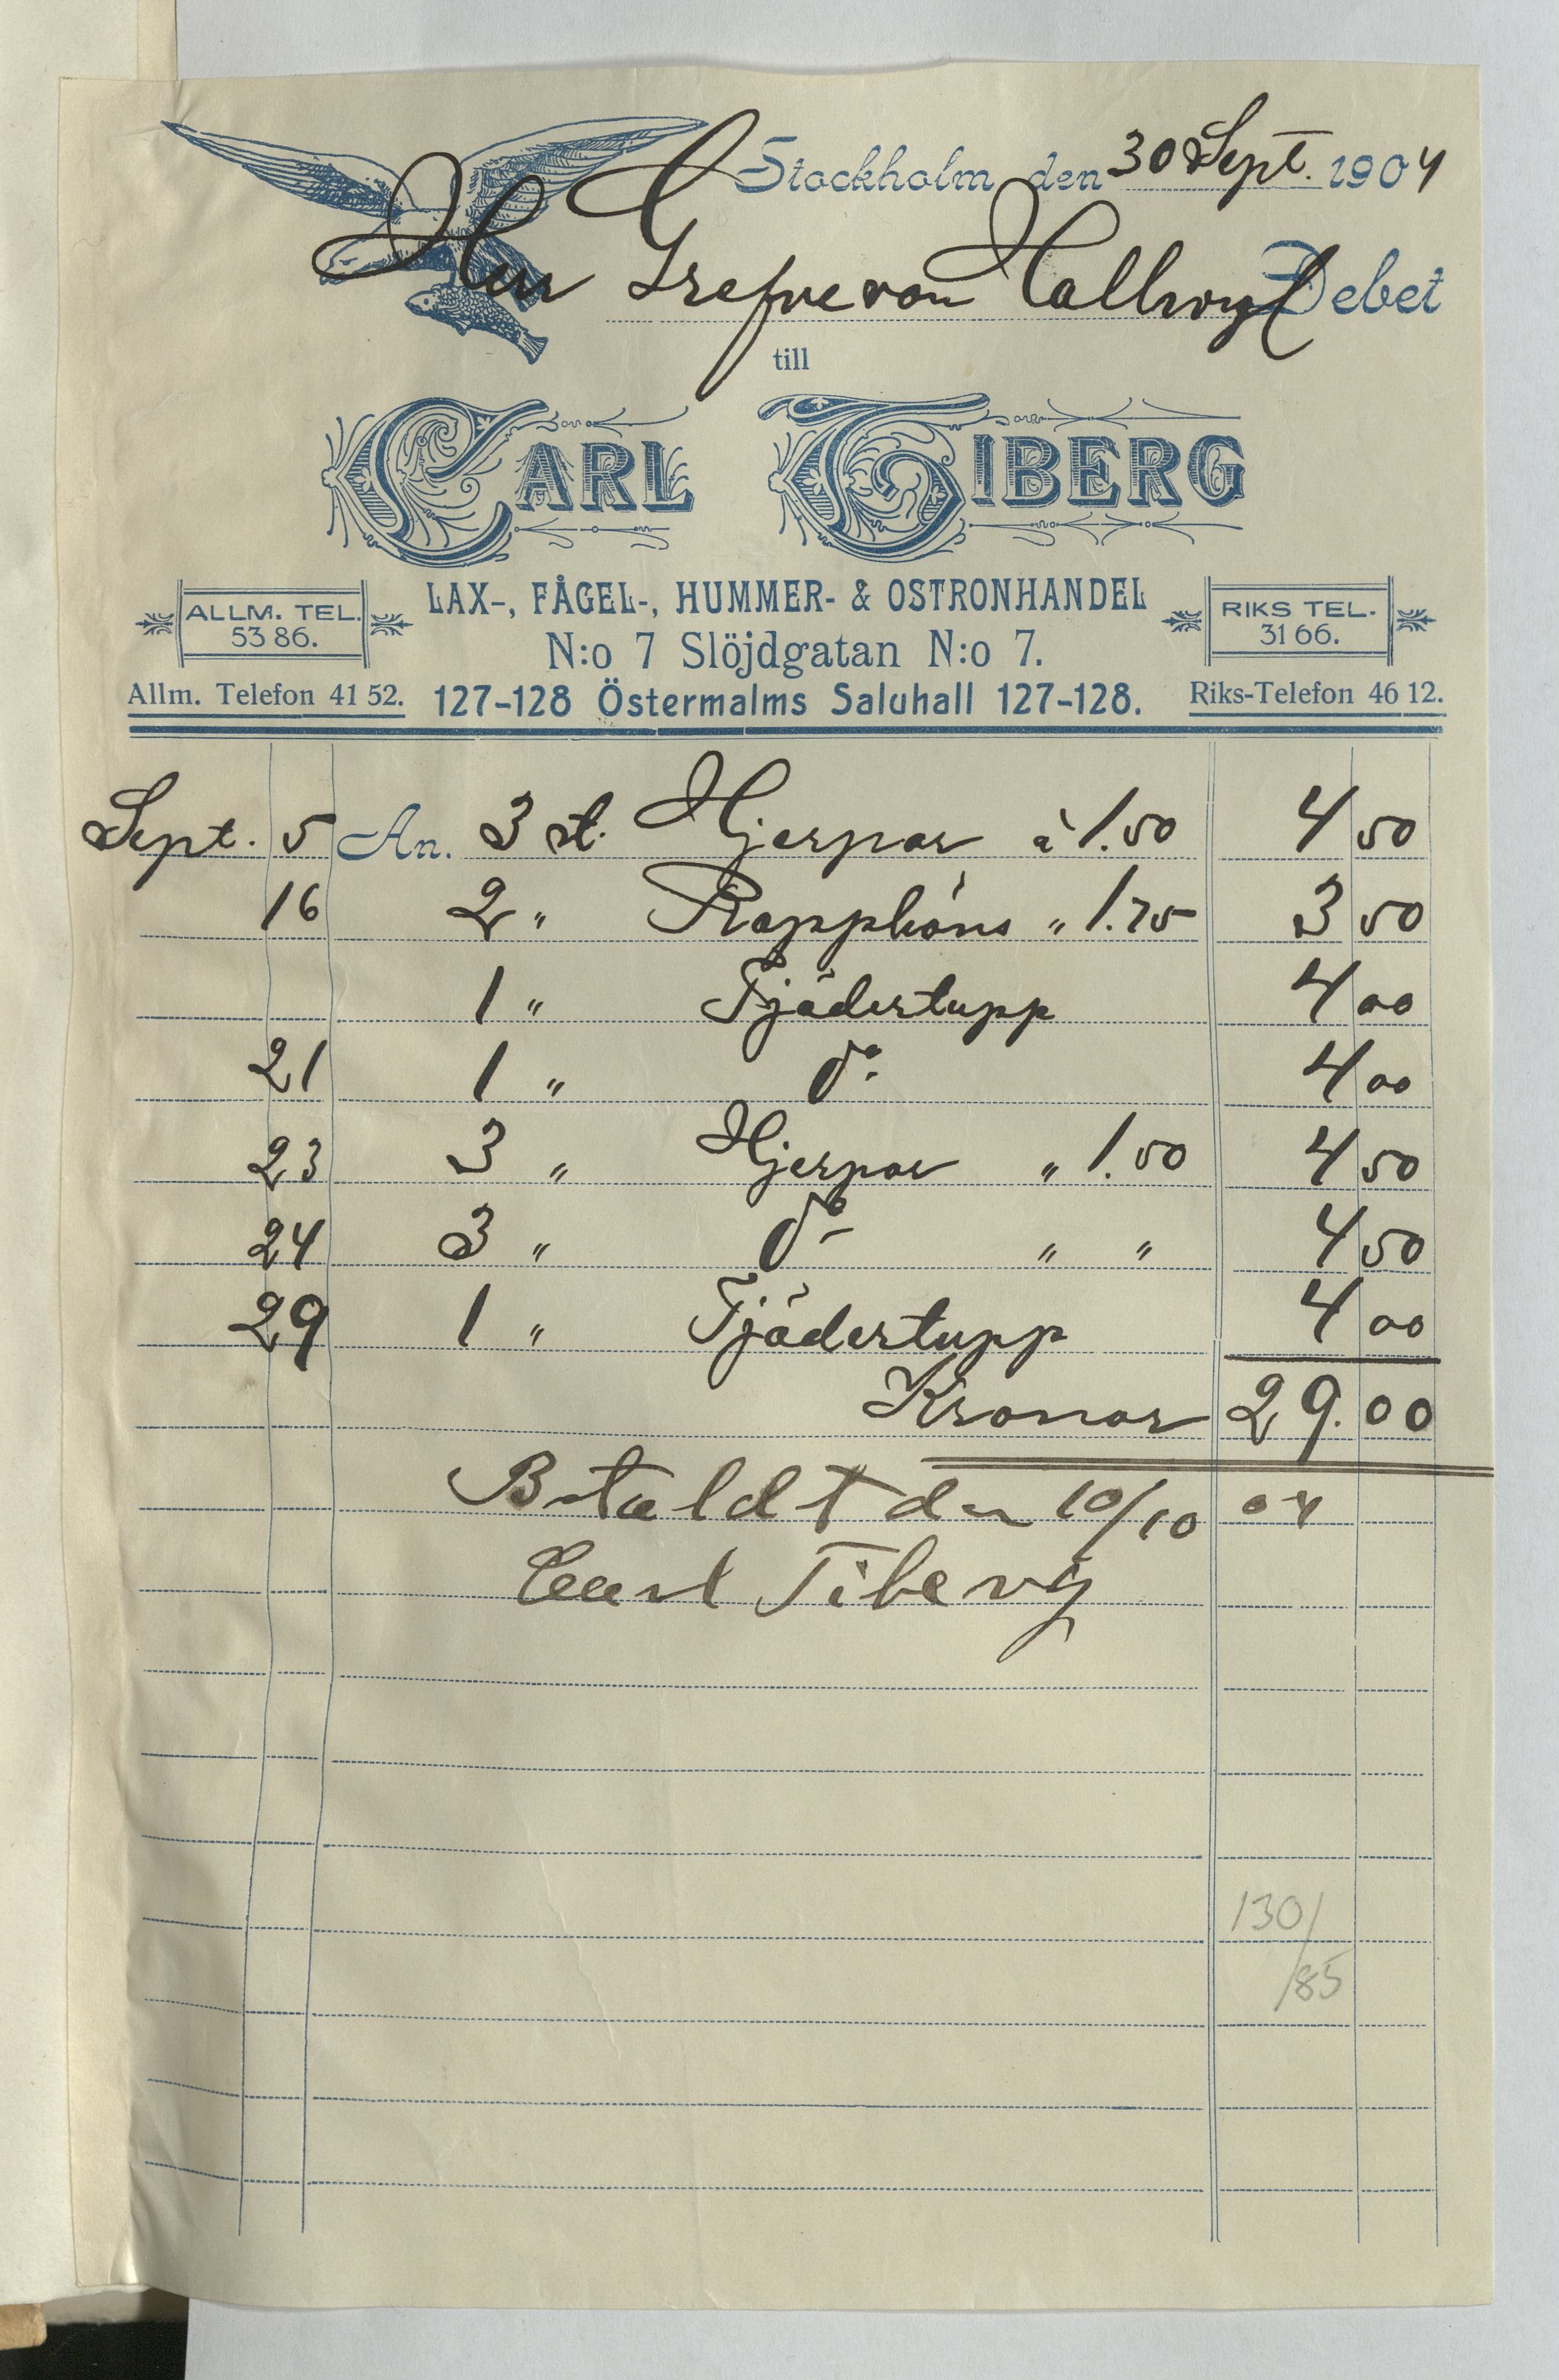 Stockholm den 30 Sept. 1904
Herr Grefve von Hallwyl Debet
till
CARL TIBERG
LAX-, FÅGEL-, HUMMER- & OSTRONHANDEL
ALLM. TEL. 53 86.
RIKS TEL. 31 66.
N:o 7 Slöjdgatan N:o 7.
Allm. Telefon 41 52. 127-128 Östermalms Saluhall 127-128. Riks-Telefon 46 12.
Sept. 5 An. 3 st. Hjerpar à 1.50 4 50
16 2 " Rapphöns " 1.75 3 50
1 " Tjädertupp 4 00
21 1 " do 4 00
23 3 " Hjerpar " 1.50 4 50
24 3 " do " " 4 50
29 1 " Tjädertupp 4 00
Kronor 29.00
Betaldt den 10/10 04
Carl Tiberg
130/
/85